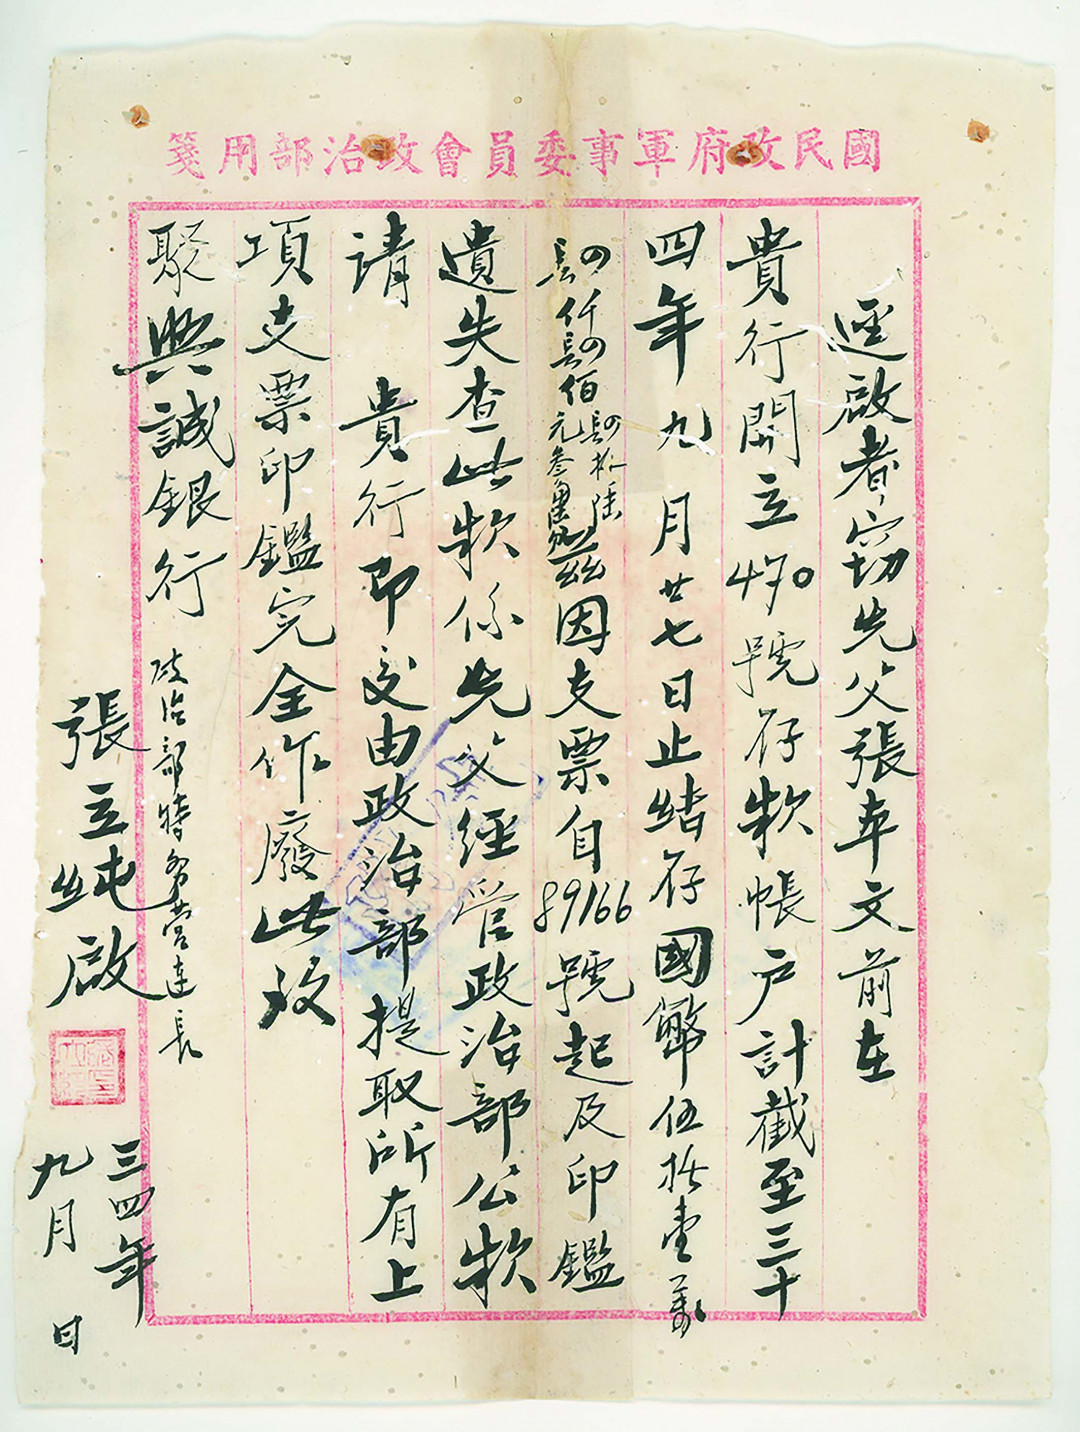 國民政府軍事委員會政治部用箋
逕啟者竊先父張本文前在
貴行開立470號存款帳戶計截至三十
四年九月廿七日止結存國幣伍拾壹萬
仟佰拾陸元叁角茲因支票自89166號起及印鑑
遺失查此款係先父經管政治部公款
请 貴行即交由政治部提取所有上
項支票印鑑完全作廢此致
聚興誠銀行
政治部特务营連長
張立純啟
三四年
九月 日